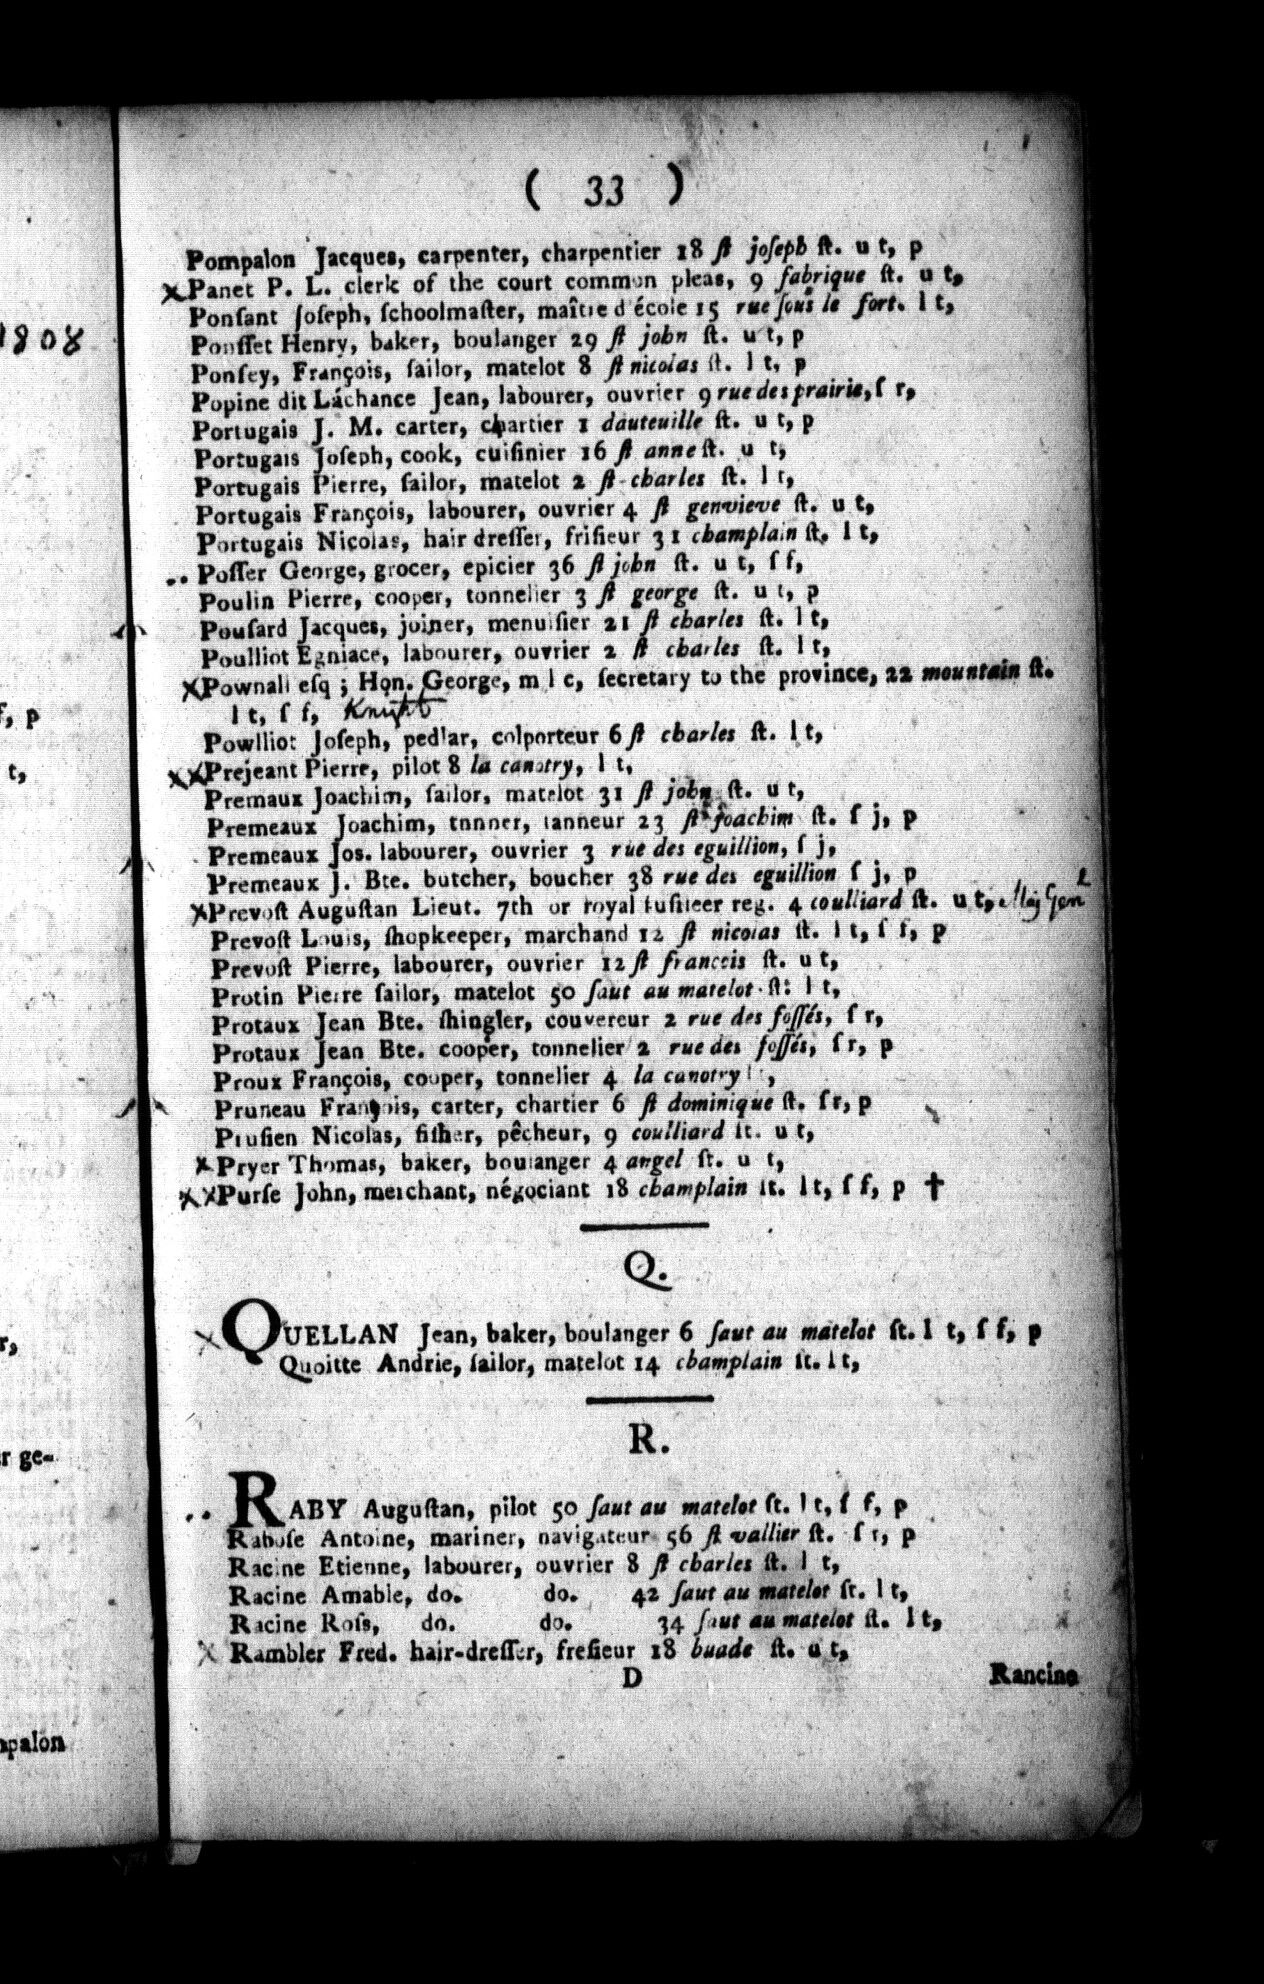 ( 33 )
Pompalon Jacques, carpenter, charpentier 18 ſt joſeph ſt. u t, p
Panet P. L. clerk of the court common pleas, 9 fabrique ſt. u t,
Ponſant Joſeph, ſchoolmaſter, maître d'école 15 rue ſous le fort. l t,
1808
Ponſſet Henry, baker, boulanger 29 ſt john ſt. u t, p
Ponſey, François, ſailor, matelot 8 ſt nicolas ſt. l t, p
Popine dit Láchance Jean, labourer, ouvrier 9 rue des prairie, ſ r,
Portugais J. M. carter, chartier 1 dáuteuille ſt. u t, p
Portugais Joſeph, cook, cuiſinier 16 ſt anne ſt. u t,
Portugais Pierre, ſailor, matelot 2 ſt-charles ſt. l t,
Portugais François, labourer, ouvrier 4 ſt genvieve ſt. u t,
Portugais Nicolas, hair dreſſer, friſieur 31 champlain ſt. l t,
.. Poſſer George, grocer, epicier 36 ſt john ſt. u t, ſ f,
Poulin Pierre, cooper, tonnelier 3 ſt george ſt. u t, p
Pouſard Jacques, joiner, menuiſier 21 ſt charles ſt. l t,
Poulliot Egniace, labourer, ouvrier 2 ſt charles ſt. l t,
Pownall eſq ; Hon. George, m l c, ſecretary to the province, 22 mountain ſt.
l t, ſ f, Knight
f, p
Powlliot Joſeph, pedlar, colporteur 6 ſt charles ſt. l t,
t,
Prejeant Pierre, pilot 8 la canotry, l t,
Premaux Joachim, ſailor, matelot 31 ſt john ſt. u t,
Premeaux Joachim, tanner, tanneur 23 ſt joachim ſt. ſ j, p
Premeaux Jos. labourer, ouvrier 3 rue des eguillion, ſ j,
Premeaux J. Bte. butcher, boucher 38 rue des eguillion ſ j, p
Prevoſt Auguſtan Lieut. 7th or royal fuſileer reg. 4 coulliard ſt. u t, Maj Genl
Prevoſt Louis, ſhopkeeper, marchand 12 ſt nicolas ſt. l t, ſ f, p
Prevoſt Pierre, labourer, ouvrier 12 ſt franceis ſt. u t,
Protin Pierre ſailor, matelot 50 ſaut au matelot ſt: l t,
Protaux Jean Bte. ſhingler, couvereur 2 rue des foſſés, ſ r,
Protaux Jean Bte. cooper, tonnelier 2 rue des foſſés, ſ r, p
Proux François, cooper, tonnelier 4 la canotry
Pruneau François, carter, chartier 6 ſt dominique ſt. ſ r, p
Pruſien Nicolas, fiſher, pêcheur, 9 coulliard ſt. u t,
Pryer Thomas, baker, boulanger 4 angel ſt. u t,
Purſe John, merchant, négociant 18 champlain ſt. l t, ſ f, p †
Q.
QUELLAN Jean, baker, boulanger 6 ſaut au matelot ſt. l t, ſ f, p
r,
Quoitte Andrie, ſailor, matelot 14 champlain ſt. l t,
R.
r ge-
.. RABY Auguſtan, pilot 50 ſaut au matelot ſt. l t, ſ f, p
Raboſe Antoine, mariner, navigateur 56 ſt vallier ſt. ſ r, p
Racine Etienne, labourer, ouvrier 8 ſt charles ſt. l t,
Racine Amable, do. do. 42 ſaut au matelot ſt. l t,
Racine Roſs, do. do. 34 ſaut au matelot ſt. l t,
Rambler Fred. hair-dreſſer, freſieur 18 buade ſt. u t,
D Rancine
apalon